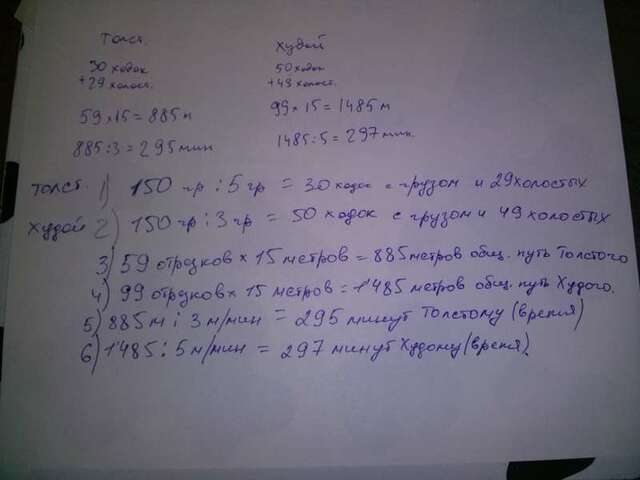 Толст.
30 ходок
+29 холост.
59 × 15 = 885 м
885 : 3 = 295 мин
Худой
50 ходок
+49 холост.
99 × 15 = 1485 м
1485 : 5 = 297 мин.
Толст. 1) 150 гр : 5 гр = 30 ходок с грузом и 29 холостых
Худой 2) 150 гр : 3 гр = 50 ходок с грузом и 49 холостых
3) 59 отрезков × 15 метров = 885 метров общ. путь Толстого
4) 99 отрезков × 15 метров = 1'485 метров общ. путь Худого.
5) 885 м : 3 м/мин = 295 минут Толстому (время)
6) 1'485 : 5 м/мин = 297 минут Худому (время).